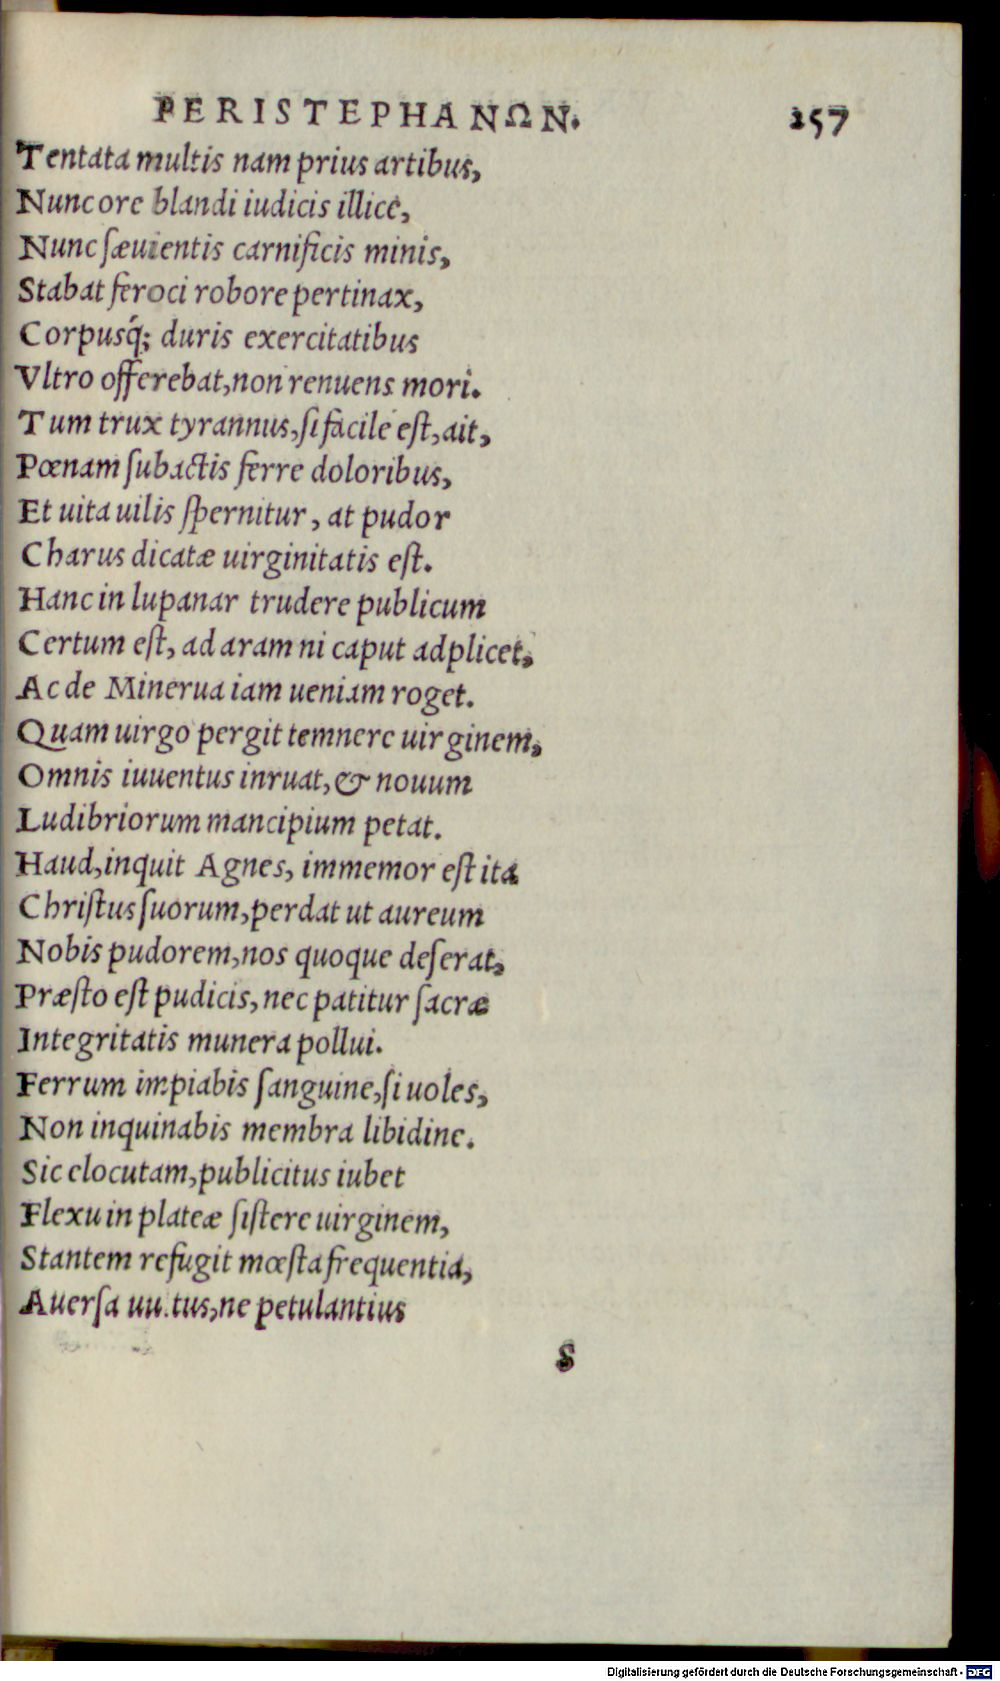 PERISTEPHANΩN. 257
Tentata multis nam prius artibus,
Nunc ore blandi iudicis illice,
Nunc sæuientis carnificis minis,
Stabat feroci robore pertinax,
Corpusq́; duris exercitatibus
Vltro offerebat, non renuens mori.
Tum trux tyrannus, si facile est, ait,
Pœnam subactis ferre doloribus,
Et uita uilis spernitur, at pudor
Charus dicatæ uirginitatis est.
Hanc in lupanar trudere publicum
Certum est, ad aram ni caput adplicet,
Ac de Minerua iam ueniam roget.
Quam uirgo pergit temnere uirginem,
Omnis iuuentus inruat, & nouum
Ludibriorum mancipium petat.
Haud, inquit Agnes, immemor est ita
Christus suorum, perdat ut aureum
Nobis pudorem, nos quoque deserat,
Præsto est pudicis, nec patitur sacræ
Integritatis munera pollui.
Ferrum impiabis sanguine, si uoles,
Non inquinabis membra libidine.
Sic elocutam, publicitus iubet
Flexu in plateæ sistere uirginem,
Stantem refugit mœsta frequentia,
Auersa uu.tus, ne petulantius
S
Digitalisierung gefördert durch die Deutsche Forschungsgemeinschaft - DFG